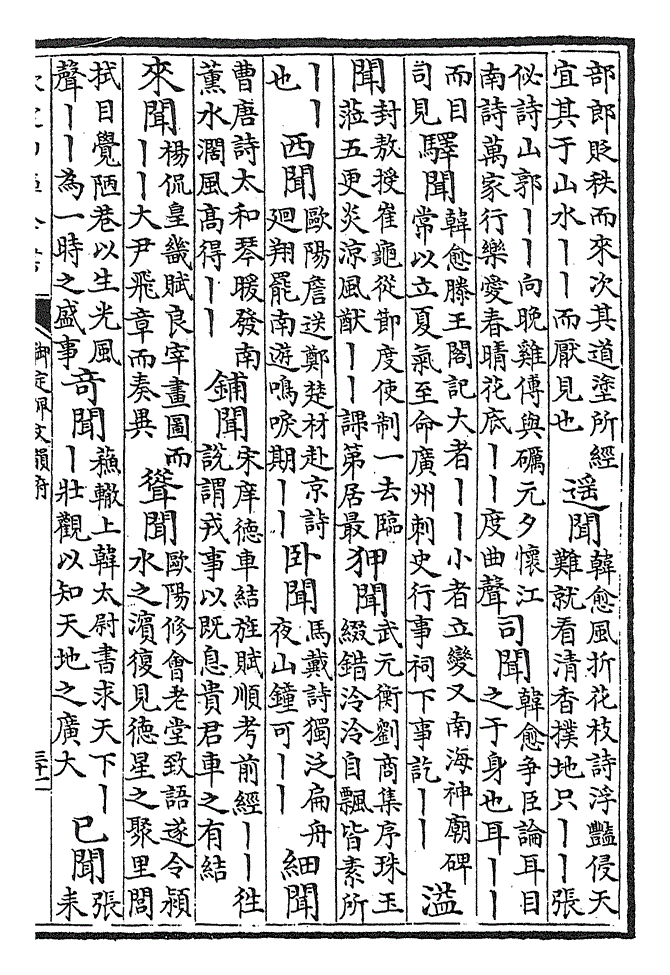 部郎貶秩而來次其道塗所經
宜其于山水丨丨而厭見也
遥聞
韓愈風折花枝詩浮豔侵天
難就看清香撲地只丨丨張
佖詩山郭丨丨向晚雞傳與礪元夕懷江
南詩萬家行樂愛春晴花底丨丨度曲聲
司聞
韓愈爭臣論耳目
之于身也耳丨丨
而目
司見
驛聞
韓愈滕王閣記大者丨丨小者立變又南海神廟碑
常以立夏氣至命廣州刺史行事祠下事訖丨丨
溢
聞
封敖授崔龜從節度使制一去臨
蒞五更炎涼風猷丨丨課第居最
狎聞
武元衡劉商集序珠玉
綴錯泠泠自飄皆素所
丨丨
也
西聞
歐陽詹送鄭楚材赴京詩
迴翔罷南遊鳴唳期丨丨
卧聞
馬戴詩獨泛扁舟
夜山鐘可丨丨
細聞
曹唐詩太和琴暖發南
薰水濶風高得丨丨
鋪聞
宋庠德車結旌賦順考前經丨丨徃
説謂戎事以既息貴君車之有結
來聞
楊侃皇畿賦良宰畫圖而
丨丨大尹飛章而奏異
聳聞
歐陽修會老堂致語遂令潁
水之濱復見德星之聚里閭
拭目覺陋巷以生光風
聲丨丨為一時之盛事
奇聞
蘇轍上韓太尉書求天下丨
丨壯觀以知天地之廣大
已聞
張
耒
御定佩文韻府